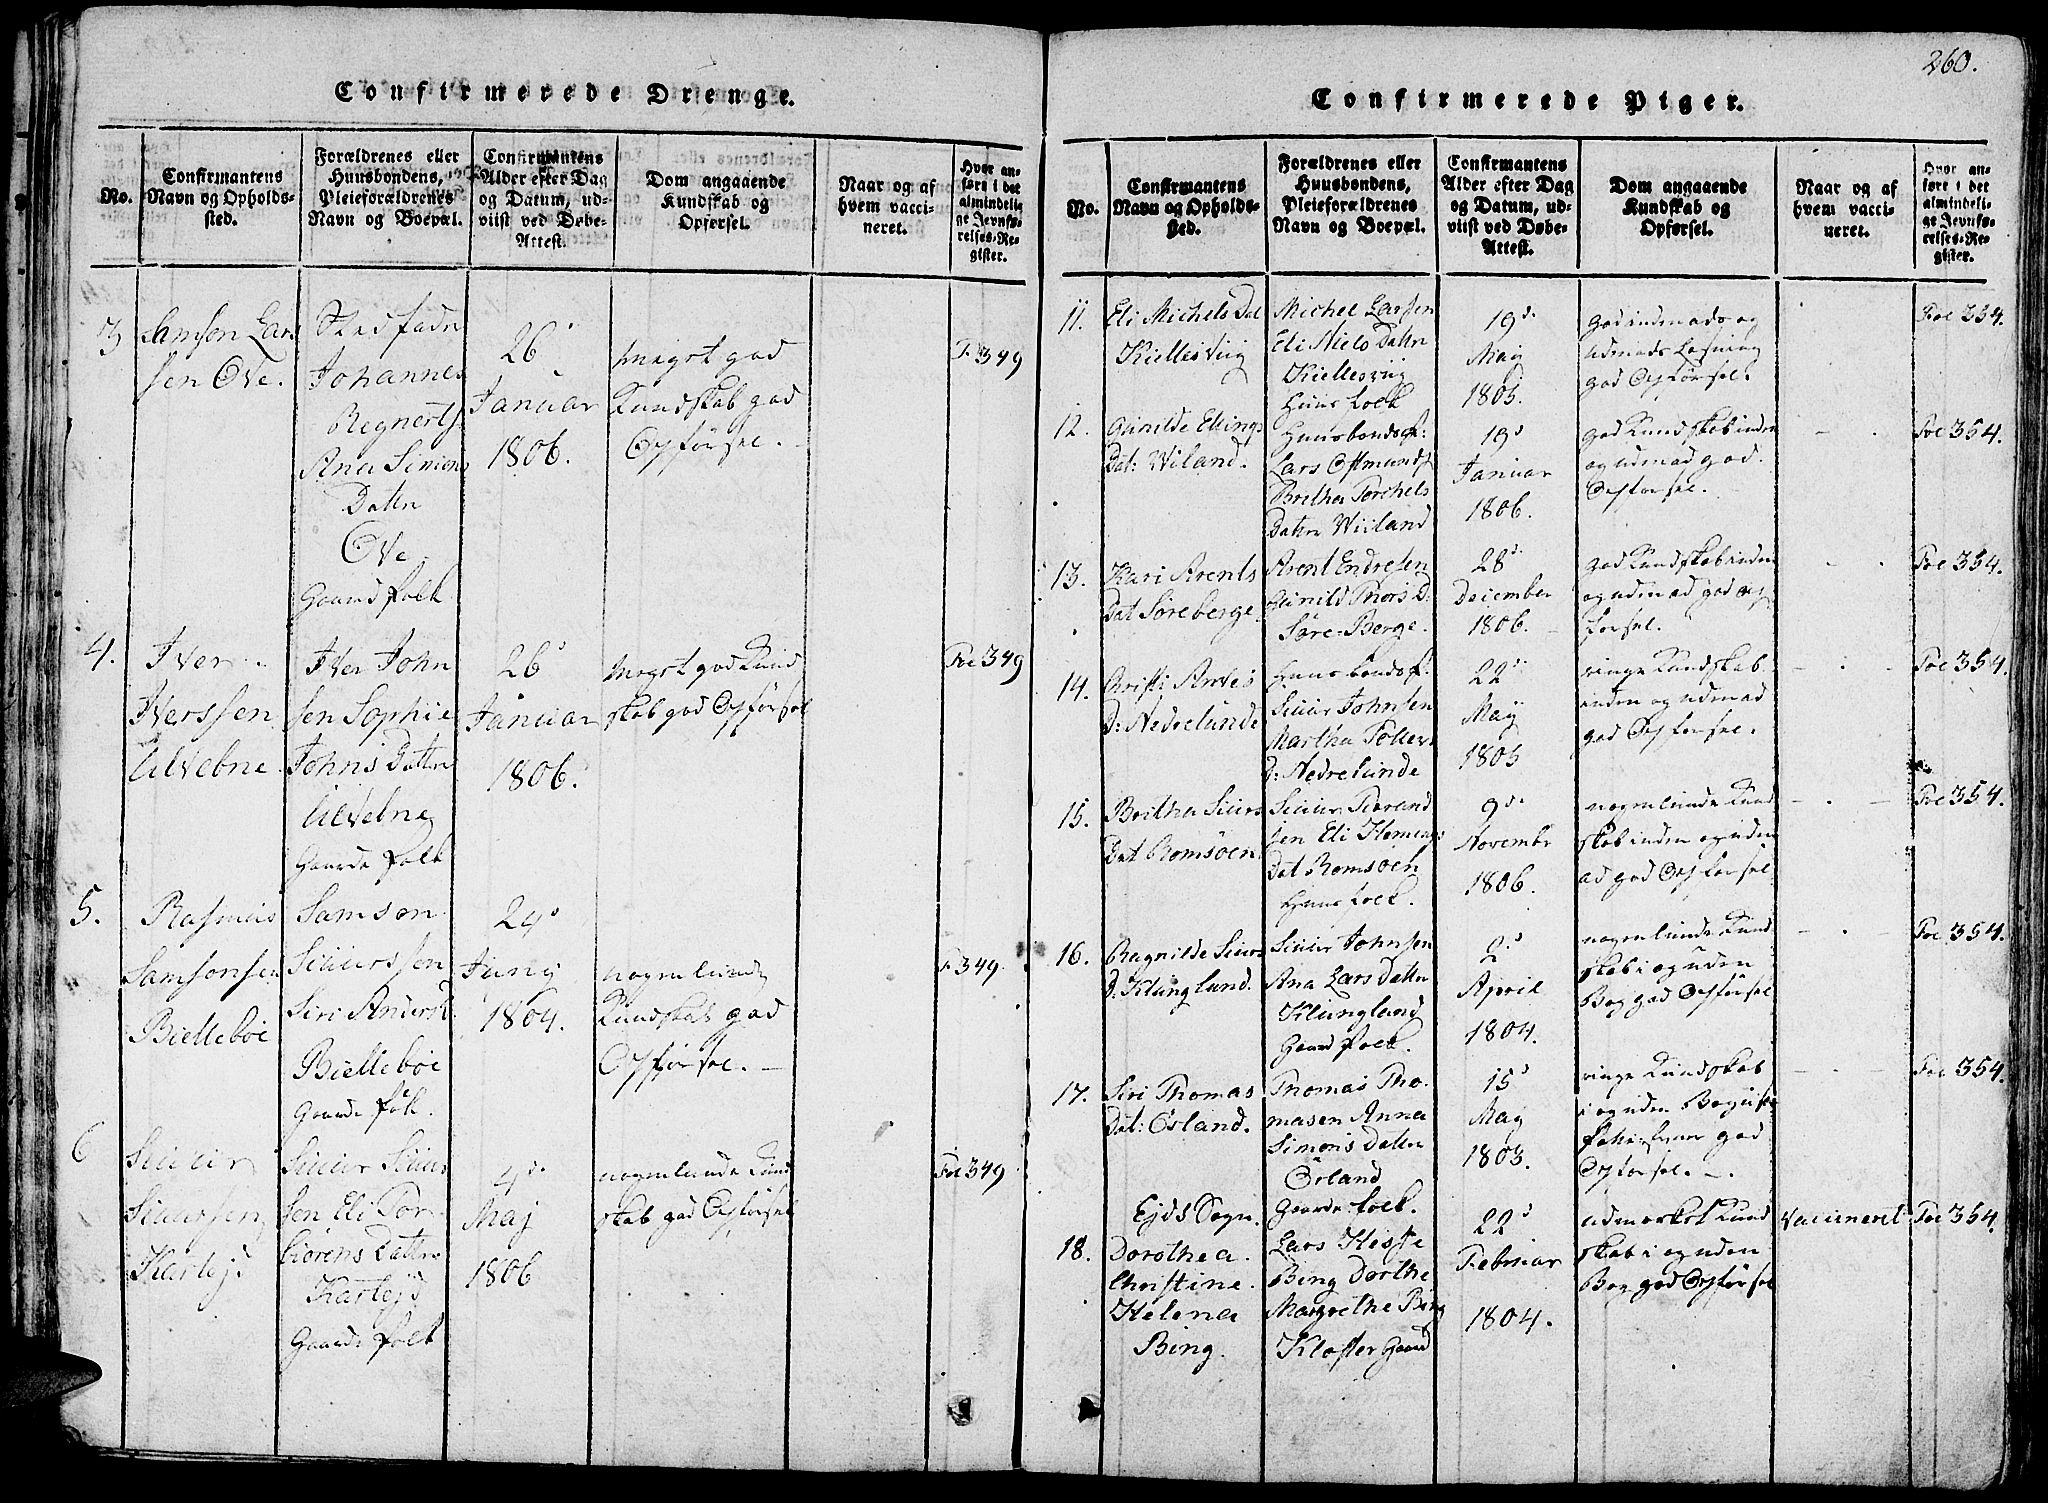 Confirmerede Drenge.
No.
Confirmantens
Navn og Opholds-
sted.
Forældrenes eller
Huusbondens,
Pleieforældrenes
Navn og Boepæl.
Confirmantens
Alder efter Dag
og Datum, ud-
viist ved Døbe-
Attest.
Dom angaaende
Kundskab og
Opførsel.
Naar og af
hvem vacci-
neret.
Hvor an-
ført i det
almindeli-
ge Jevnfø-
relses-Re-
gister.
3
Samson Lars
sen Ove.
Stedfadr
Johannes
Regnerts.
Ana Simons
Dattr
Ove
Gaardfolk
26
Januar
1806.
meget god
Kundskab god
Opførsel.
F. 349
4.
Iver
Iverssen
Ulvebne
Iver John
sen Sophie
Johns Dattr
Ulvebne
Gaardefolk
26
Januar
1806.
meget god Kund
skab god Opførsel
Foe 349
5.
Rasmus
Samsonsen
Bielleböe
Samson
Siuurssen
Siri Andersd.
Bielleböe
Gaardefolk.
24
Juny
1804.
nogenlunde
Kundskab god
Opførsel.
F. 349
6
Siuur
Siuurssen
Kartejd
Siuur Siuurs
sen Eli Tor
biorens Dattr
Kartejd
Gaardefolk
4d.
Maj
1806
nogenlunde Kund
skab god Opførsel
Foe 349
260.
Confirmerede Piger.
No.
Confirmantens
Navn og Opholds-
sted.
Forældrenes eller
Huusbondens,
Pleieforældrenes
Navn og Boepæl.
Confirmantens
Alder efter Dag
og Datum, ud-
viist ved Døbe-
Attest.
Dom angaaende
Kundskab og
Opførsel.
Naar og af
hvem vacci-
neret.
Hvor an-
ført i det
almindeli-
ge Jevnfø-
relses-Re-
gister.
11.
Eli Michels Dat
Kiellesviig
Michel Larsen
Eli Niels Dattr
Kiellesviig
Huusfolk
19d.
May
1805.
god indenads og
udenads Læsning
god Opførsel.
Foe 354.
12.
Gunilde Ellings
Dat: Wiland.
Huusbondsf:
Lars Ostmunds
Britha Torchels
Dattr Wiiland
19d
Januar
1806.
god Kundskab inden
og udenad god
Opførsel.
Foe 354.
13.
Kari Arents
Dat Søreberge
Arent Endresen
Gunild Thors D:
Søre-Berge.
28d.
December
1806.
god Kundskab inden
og udenad god Op
førsel.
Foe 354.
14.
Christi Arves
D: Nedrelunde
Huusbondsf:
Siuur Johnsen
Martha Tollevs
D: Nedrelunde
22d.
May
1805
ringe Kundskab
inden og udenad
god Opførsel.
Foe 354.
15.
Britha Siuurs
Dat Romsøen
Siuur Torrand
sen Eli Flemings
Dat Romsøen
Huusfolk.
9d.
Novembr
1806.
nogenlunde Kund
skab inden og uden
ad god Opførsel.
Foe 354.
16.
Ragnilde Siuurs
D: Klungland.
Siuur Johnsen
Ana Lars Dattr
Klungland
Gaardfolk.
2d
April
1804.
nogenlunde Kund
skab i og uden
Bog god Opførsel
Foe 354.
17.
Siri Thomas
Dat: Osland.
Thomas Tho-
masen Anna
Simons Dattr
Orland
Gaardefolk.
15d
May
1803.
ringe Kundskab
i og uden Bog
god
Opførsel.
Foe 354.
Ejds Sogn.
18.
Dorothea
Christine
Helena
Bing.
Lars Hesse
Bing Dorthe
Margrethe Bing
Kloster Gaard
22d
Februar
1804.
udmerket Kund
skab i og uden
Bog god Opførsel
Vaccineret
Foe 354.